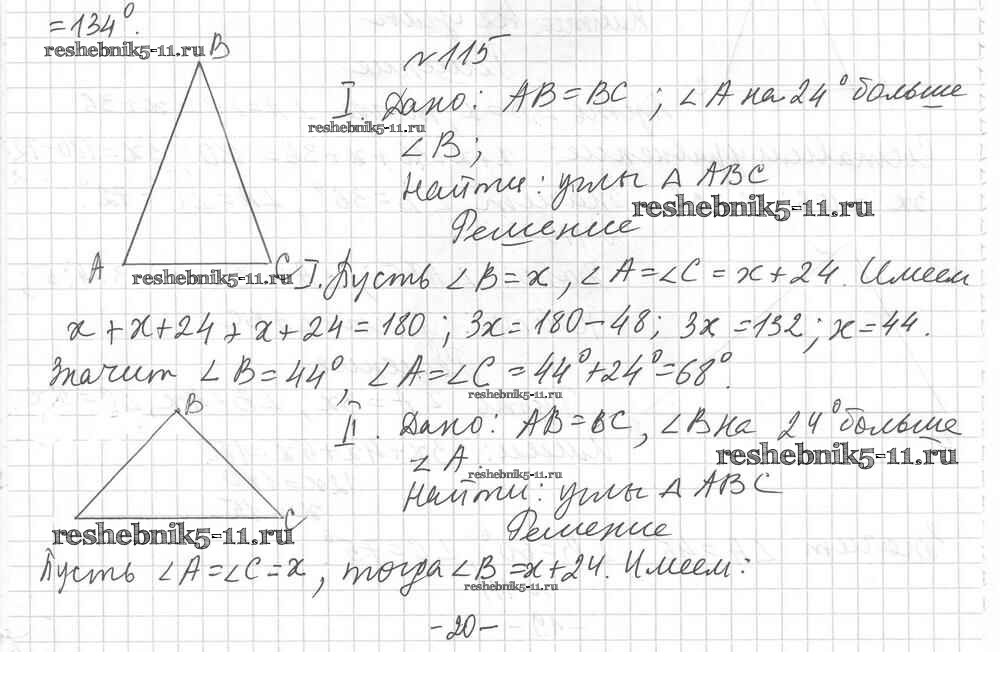 =134°.
reshebnik5-11.ru
B
№115
I. Дано: AB=BC; ∠A на 24° больше
reshebnik5-11.ru
∠B;
Найти: углы △ ABC
reshebnik5-11.ru
Решение
A
C
reshebnik5-11.ru
I. Пусть ∠B=x, ∠A=∠C=x+24. Имеем
x+x+24+x+24=180; 3x=180-48; 3x=132; x=44.
Значит ∠B=44°, ∠A=∠C=44°+24°=68°.
reshebnik5-11.ru
B
II. Дано: AB=BC, ∠B на 24° больше
reshebnik5-11.ru
∠A.
reshebnik5-11.ru
Найти: углы △ ABC
C
reshebnik5-11.ru
Решение
Пусть ∠A=∠C=x, тогда ∠B=x+24. Имеем:
reshebnik5-11.ru
-20-